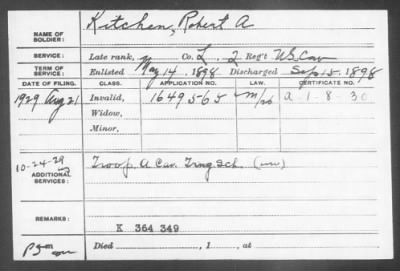 NAME OF SOLDIER: Kitchen, Robert A
SERVICE: Late rank, Co. L, 2 Reg't U.S. Cav
TERM OF SERVICE: Enlisted May 14, 1898 Discharged Sep 15, 1898
DATE OF FILING. CLASS. APPLICATION NO. LAW. CERTIFICATE NO.
1929 Aug 21 Invalid, 1649565 A-1-8-30
Widow,
Minor,
10-24-29
ADDITIONAL SERVICES: Troop A Cav. Trng Sch. (WW)
REMARKS: K 364 349
Died , 1 , at